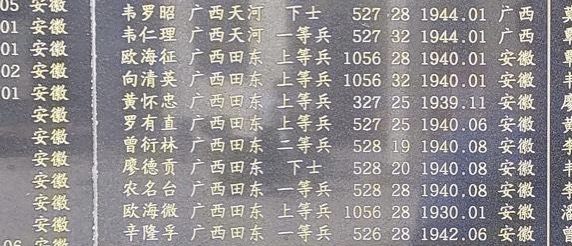 05 安徽 韦罗昭 广西天河 下士 527 28 1944.01 广西
01 安徽 韦仁理 广西天河 一等兵 527 32 1944.01 广西
01 安徽 欧海征 广西田东 上等兵 1056 28 1940.01 安徽
02 安徽 向清英 广西田东 上等兵 1056 32 1940.01 安徽
01 安徽 黄怀忠 广西田东 上等兵 327 25 1939.11 安徽
安徽 罗有直 广西田东 上等兵 527 25 1940.06 安徽 黄
安徽 曾衍林 广西田东 二等兵 528 19 1940.08 安徽 李
安徽 廖德贡 广西田东 下士 528 20 1940.08 安徽
安徽 农名台 广西田东 一等兵 528 28 1940.08 安徽 李
安徽 欧海微 广西田东 上等兵 1056 28 1930.01 安徽 潘
06 安徽 辛隆孚 广西田东 一等兵 526 28 1942.06 安徽 曾